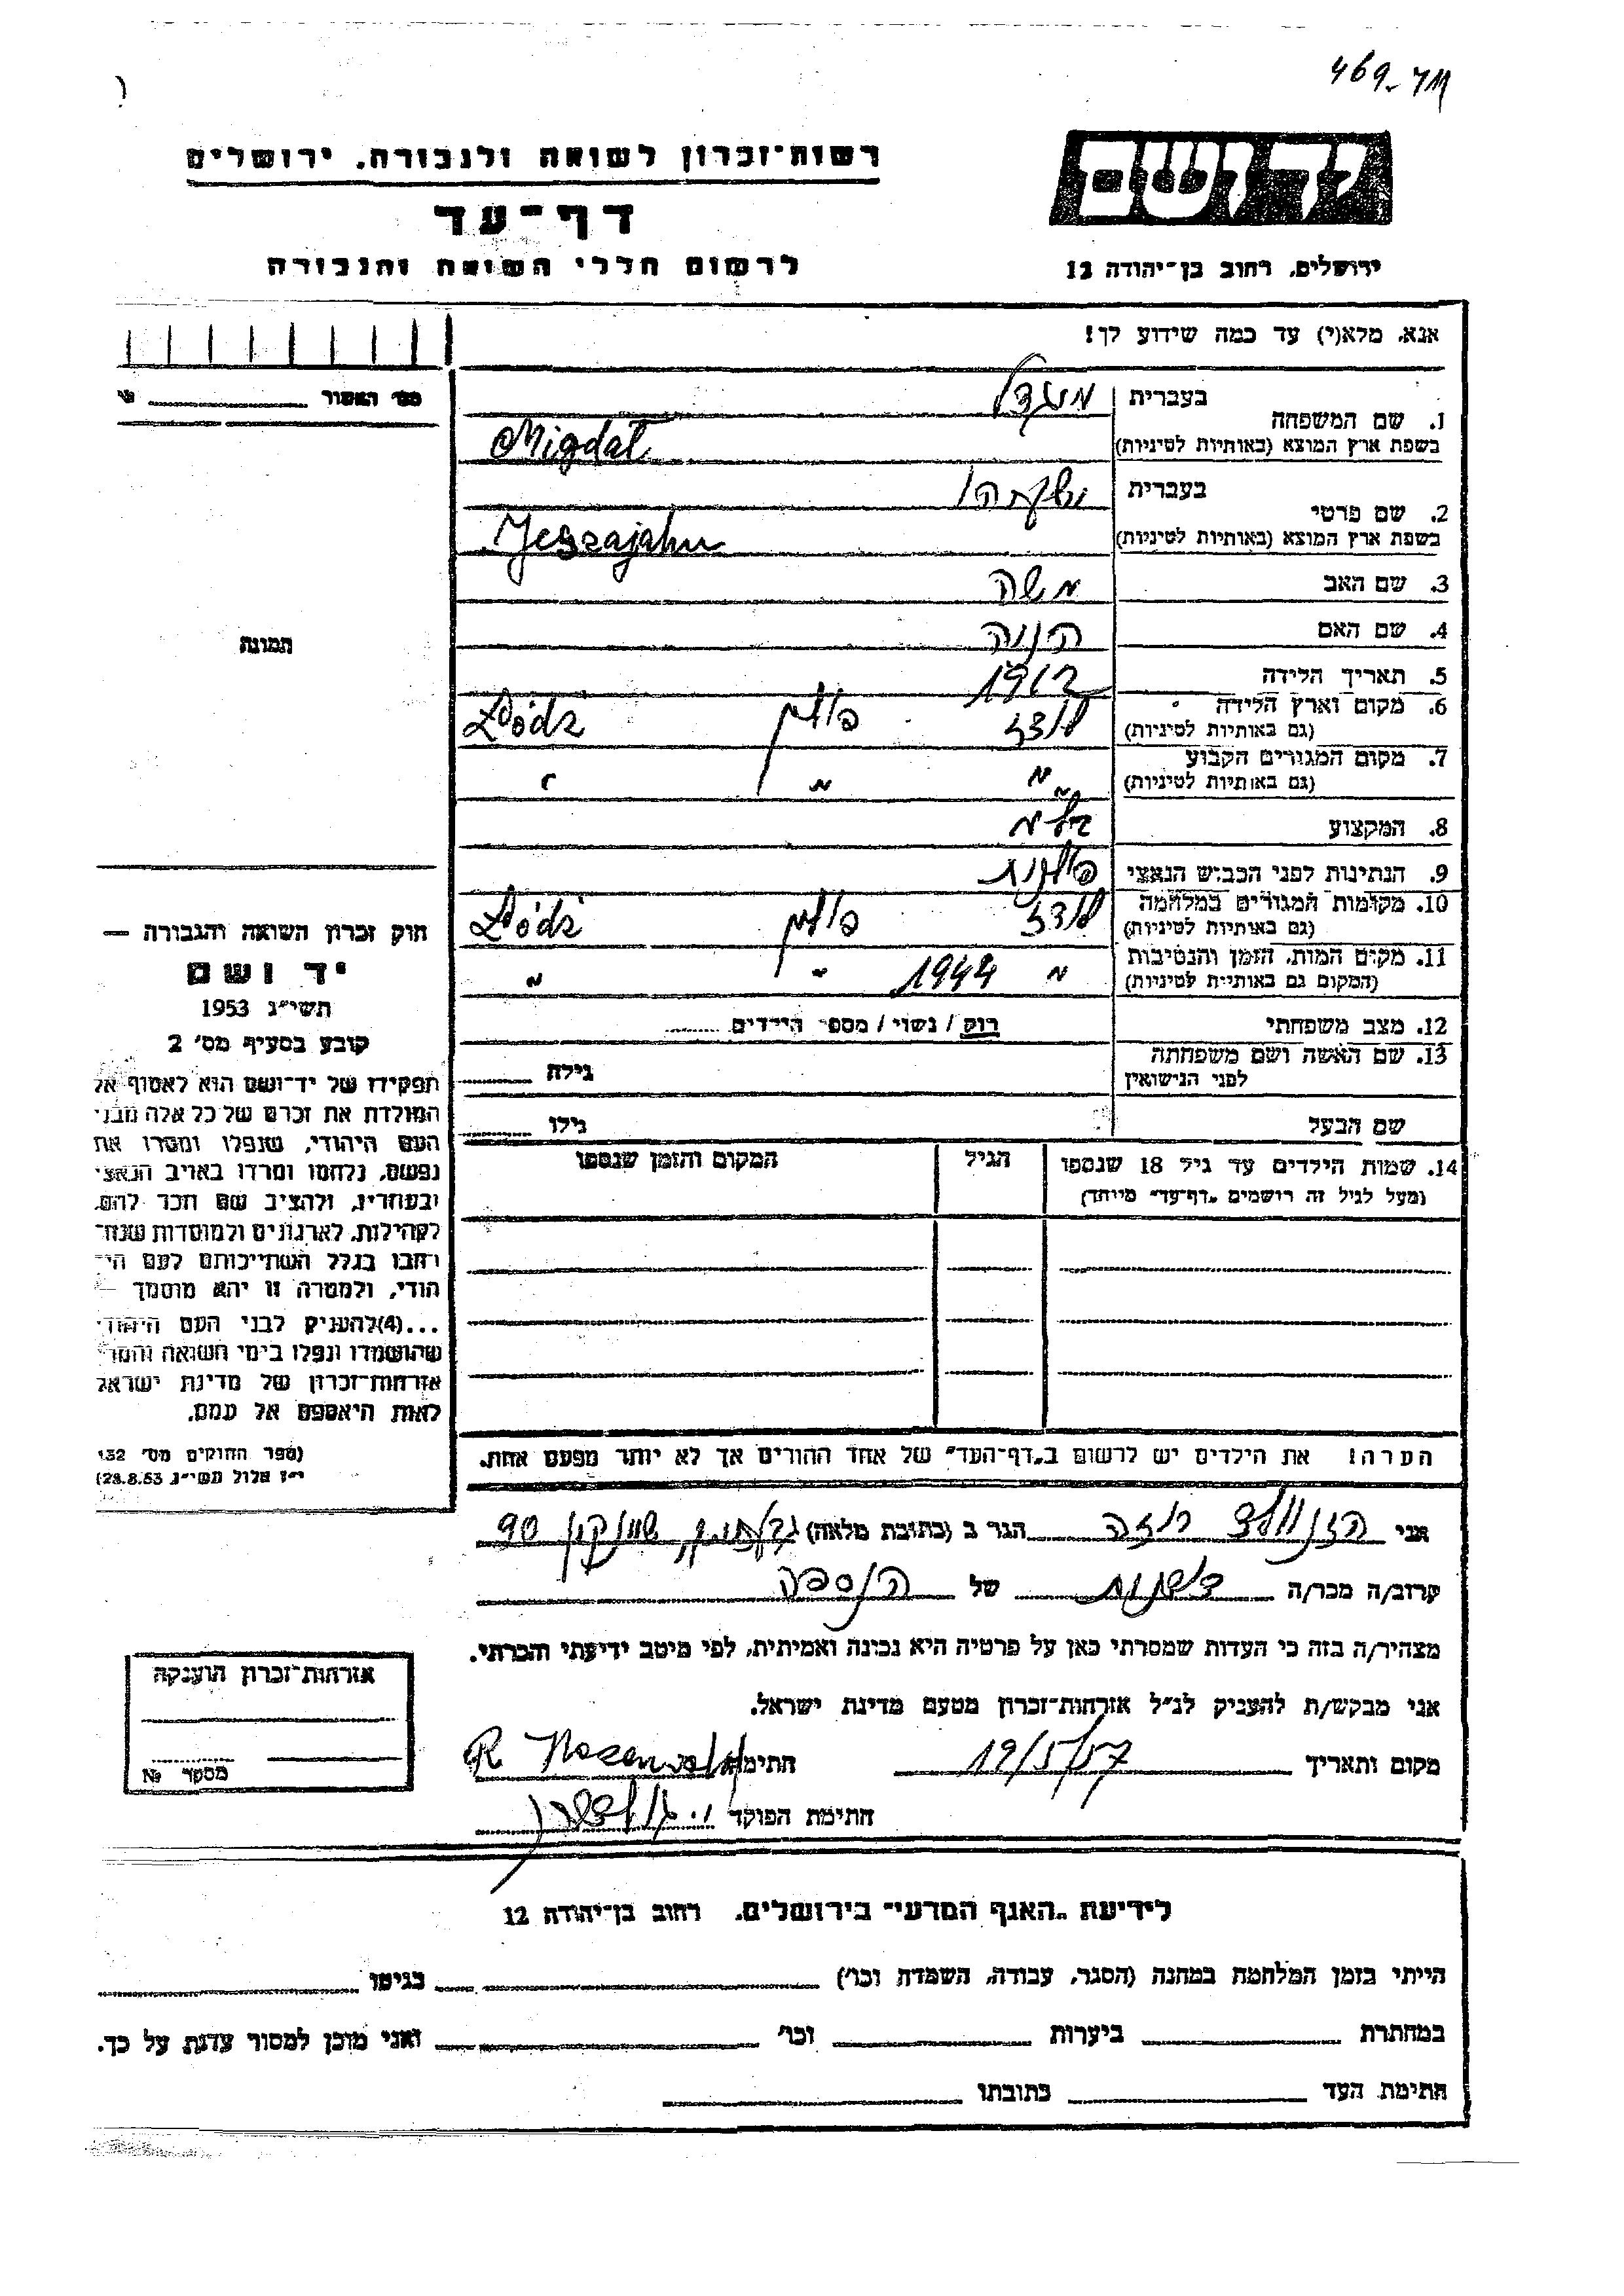 469-711
רשות־זכרון לשואה ולגבורה, ירושלים
יד ושם
דף־עד
לרשום חללי השואה והגבורה
ירושלים, רחוב בן־יהודה 12
אנא, מלא(י) עד כמה שידוע לך!
מס׳ האשור
1. שם המשפחה בעברית מיגדל
בשפת ארץ המוצא (באותיות לטיניות) Migdał
2. שם פרטי בעברית ישעיהו
בשפת ארץ המוצא (באותיות לטיניות) Jeszajahu
3. שם האב משה
4. שם האם חנה
5. תאריך הלידה 1912
6. מקום וארץ הלידה לודז פולין Łódź
(גם באותיות לטיניות)
7. מקום המגורים הקבוע " " "
(גם באותיות לטיניות)
8. המקצוע
9. הנתינות לפני הכבוש הנאצי פולנית
10. מקומות המגורים במלחמה לודז פולין Łódź
(גם באותיות לטיניות)
11. מקום המות, הזמן והנסיבות " 1944 " "
(המקום גם באותיות לטיניות)
12. מצב משפחתי רוק / נשוי / מספר הילדים
13. שם האשה ושם משפחתה גילה
לפני הנישואין
שם הבעל גילו
14. שמות הילדים עד גיל 18 שנספו הגיל המקום והזמן שנספו
(מעל לגיל זה רושמים „דף־עד" מיוחד)
תמונה
חוק זכרון השואה והגבורה —
יד ושם
תשי״ג 1953
קובע בסעיף מס׳ 2
תפקידו של יד־ושם הוא לאסוף אל
המולדת את זכרם של כל אלה מבני
העם היהודי, שנפלו ומסרו את
נפשם, נלחמו ומרדו באויב הנאצי
ובעוזריו, ולהציב שם וזכר להם,
לקהילות, לארגונים ולמוסדות שנח־
רחבו בגלל השתייכותם לעם הי־
הודי, ולמטרה זו יהא מוסמך —
...(4) להעניק לבני העם היהודי
שהושמדו ונפלו בימי השואה והמרי
אזרחות־זכרון של מדינת ישראל
לאות היאספם אל עמם.
(ספר החוקים מס׳ 132,
י״ז אלול תשי״ג 28.8.53)
הערה! את הילדים יש לרשום ב„דף־העד" של אחד ההורים אך לא יותר מפעם אחת.
אני רוזנוולד רוזה הגר ב (כתובת מלאה) גבעתיים, שינקין 90
קרוב/ה מכר/ה של הנספה
מצהיר/ה בזה כי העדות שמסרתי כאן על פרטיה היא נכונה ואמיתית, לפי מיטב ידיעתי והכרתי.
אני מבקש/ת להעניק לנ״ל אזרחות־זכרון מטעם מדינת ישראל.
מקום ותאריך 19/5/57 חתימה R Rozenwald
חתימת הפוקד
אזרחות־זכרון הוענקה
מספר №
לידיעת „האגף המדעי" בירושלים, רחוב בן־יהודה 12
הייתי בזמן המלחמה במחנה (הסגר, עבודה, השמדה וכו׳) בגיטו
במחתרת ביערות וכו׳ ואני מוכן למסור עדות על כך.
חתימת העד כתובתו